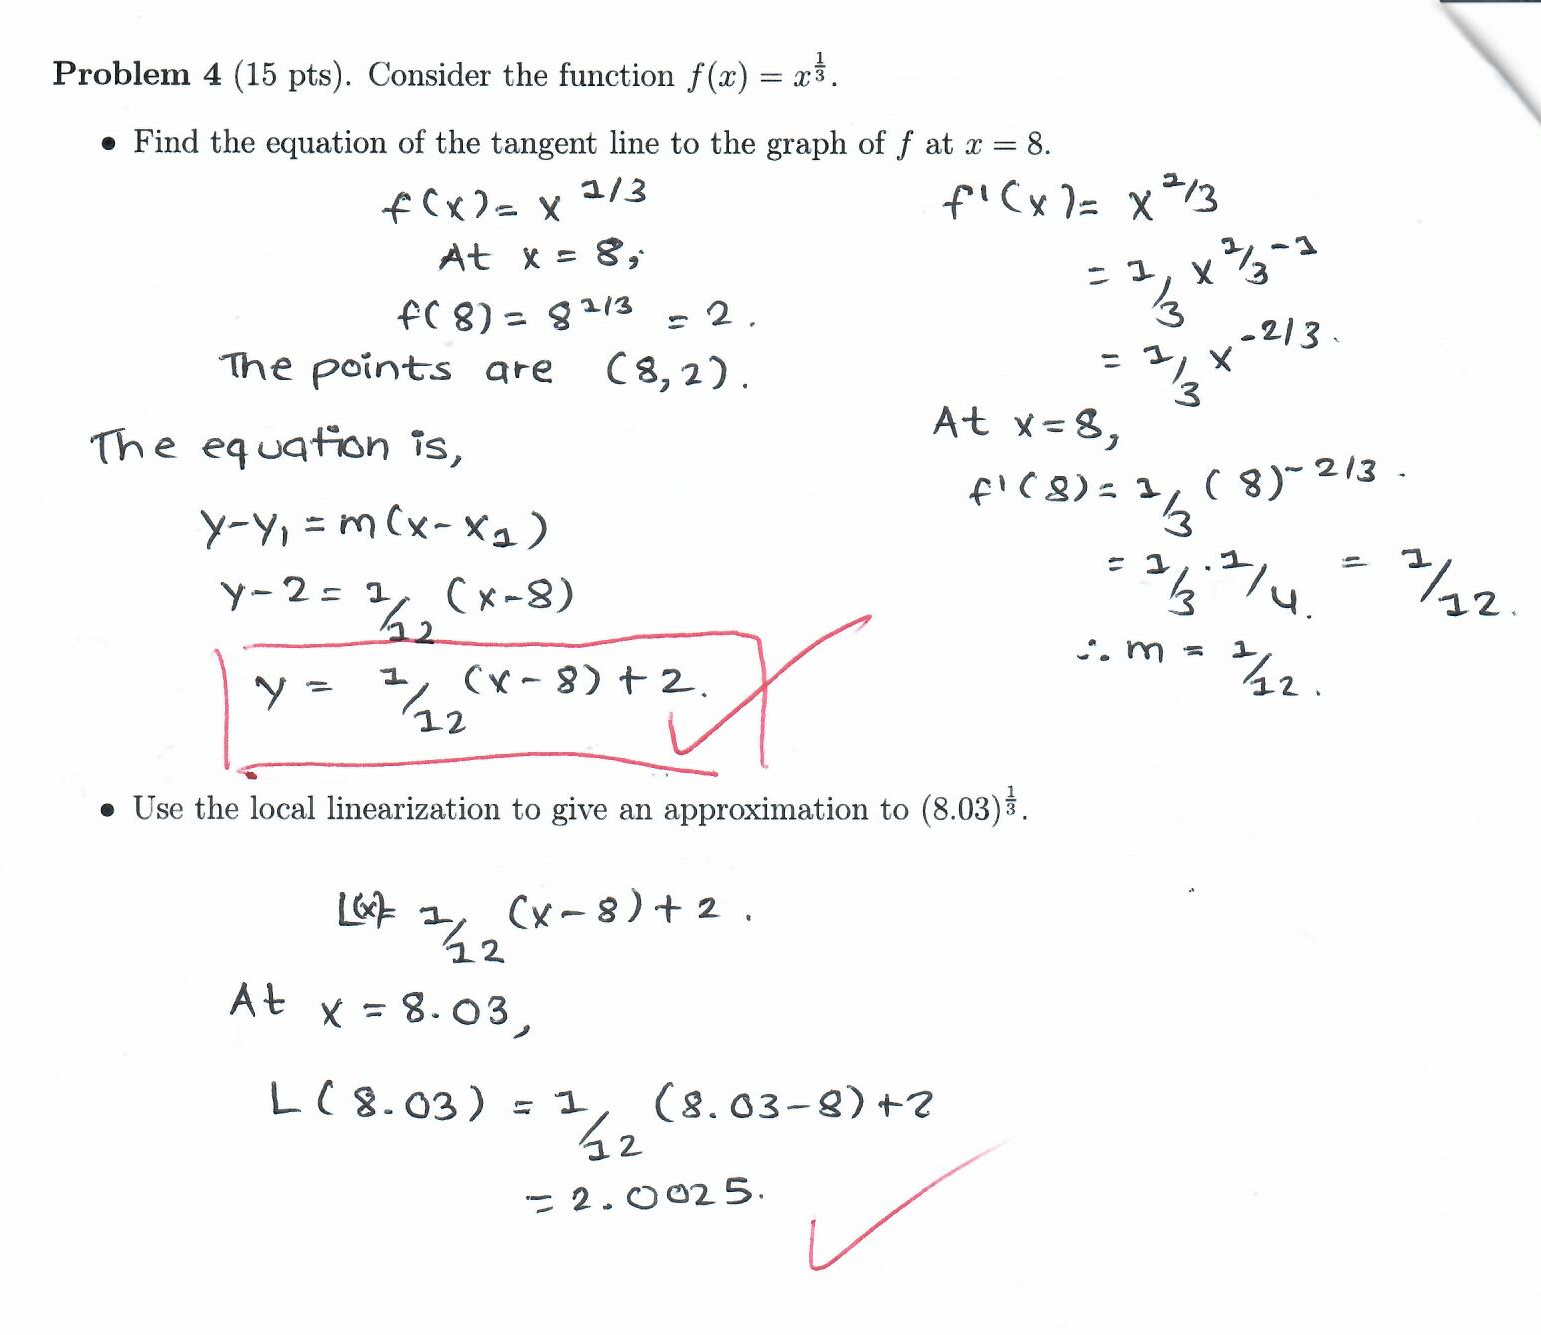 Problem 4 (15 pts). Consider the function f(x) = x^{1/3}.
• Find the equation of the tangent line to the graph of f at x = 8.
f(x) = x^{1/3}
At x = 8,
f(8) = 8^{1/3} = 2.
The points are (8,2).
The equation is,
y-y₁ = m(x-x₁)
y-2 = 1/12 (x-8)
y = 1/12 (x-8)+2.
f'(x) = x^{1/3}
= 1/3 x^{1/3 -1}
= 1/3 x^{-2/3}.
At x=8,
f'(8) = 1/3 (8)^{-2/3}.
= 1/3 · 1/4. = 1/12.
∴ m = 1/12.
• Use the local linearization to give an approximation to (8.03)^{1/3}.
L(x)= 1/12 (x-8)+2.
At x = 8.03,
L(8.03) = 1/12 (8.03-8)+2
= 2.0025.